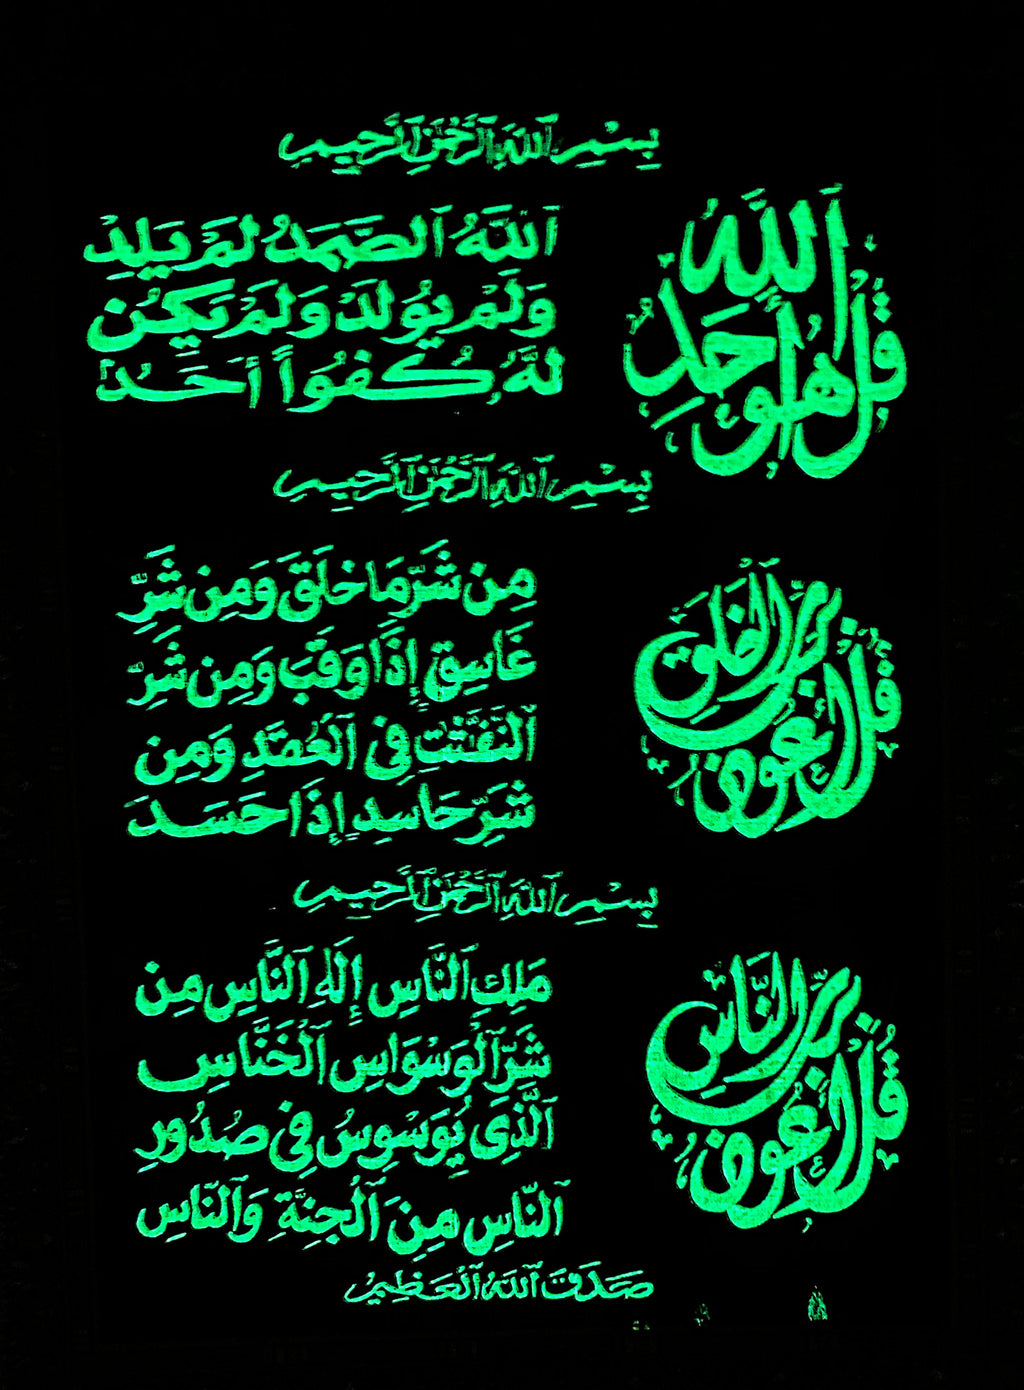 بِسْمِ ٱللَّهِ ٱلرَّحْمَٰنِ ٱلرَّحِيمِ
قُلْ هُوَ ٱللَّهُ أَحَدٌ
ٱللَّهُ ٱلصَّمَدُ لَمْ يَلِدْ
وَلَمْ يُولَدْ وَلَمْ يَكُن
لَّهُۥ كُفُوًا أَحَدٌ
بِسْمِ ٱللَّهِ ٱلرَّحْمَٰنِ ٱلرَّحِيمِ
قُلْ أَعُوذُ بِرَبِّ ٱلْفَلَقِ
مِن شَرِّ مَا خَلَقَ وَمِن شَرِّ
غَاسِقٍ إِذَا وَقَبَ وَمِن شَرِّ
ٱلنَّفَّٰثَٰتِ فِى ٱلْعُقَدِ وَمِن
شَرِّ حَاسِدٍ إِذَا حَسَدَ
بِسْمِ ٱللَّهِ ٱلرَّحْمَٰنِ ٱلرَّحِيمِ
قُلْ أَعُوذُ بِرَبِّ ٱلنَّاسِ
مَلِكِ ٱلنَّاسِ إِلَٰهِ ٱلنَّاسِ مِن
شَرِّ ٱلْوَسْوَاسِ ٱلْخَنَّاسِ
ٱلَّذِى يُوَسْوِسُ فِى صُدُورِ
ٱلنَّاسِ مِنَ ٱلْجِنَّةِ وَٱلنَّاسِ
صَدَقَ ٱللَّهُ ٱلْعَظِيمُ